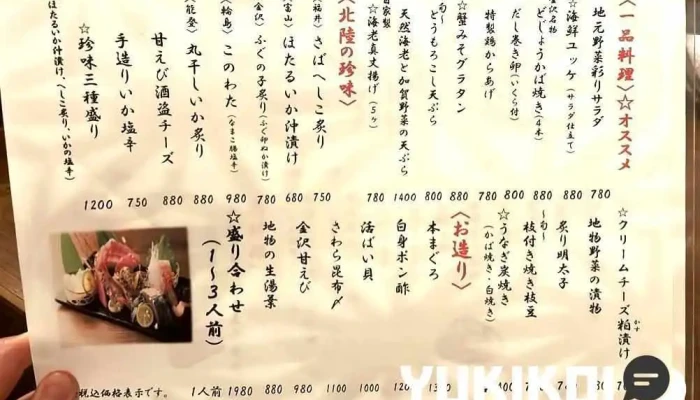 〈一品料理〉☆オススメ
地元野菜彩りサラダ 780
☆海鮮ユッケ(サラダ仕立て) 880
金沢名物
どじょうかば焼き(4本) 880
だし巻き卵(いくら付) 800
特製鶏からあげ 780
☆蟹みそグラタン 880
〜旬〜
とうもろこし天ぷら 800
天然海老と加賀野菜の天ぷら 1400
自家製
☆海老真丈揚げ(5ヶ) 780
〈北陸の珍味〉
(福井)さばへしこ炙り 750
(富山)ほたるいか沖漬け 680
(金沢)ふぐの子炙り(ふぐ卵ぬか漬け) 780
(輪島)このわた(なまこ腸塩辛) 980
(能登)丸干しいか炙り 880
甘えび酒盗チーズ 880
手造りいか塩辛 750
☆珍味三種盛り 1200
ほたるいか沖漬け、へしこ炙り、いかの塩辛)
☆クリームチーズ粕漬け
かす
地物野菜の漬物
炙り明太子
〜旬〜
枝付き焼き枝豆
☆うなぎ炭焼き
(かば焼き・白焼き)
〈お造り〉
本まぐろ
白身ポン酢
活ばい貝 1000
さわら昆布〆 1100
金沢甘えび 880
地物の生湯葉 880
☆盛り合わせ
(1〜3人前)
1人前 1980
税込価格表示です。
YUKIKOI